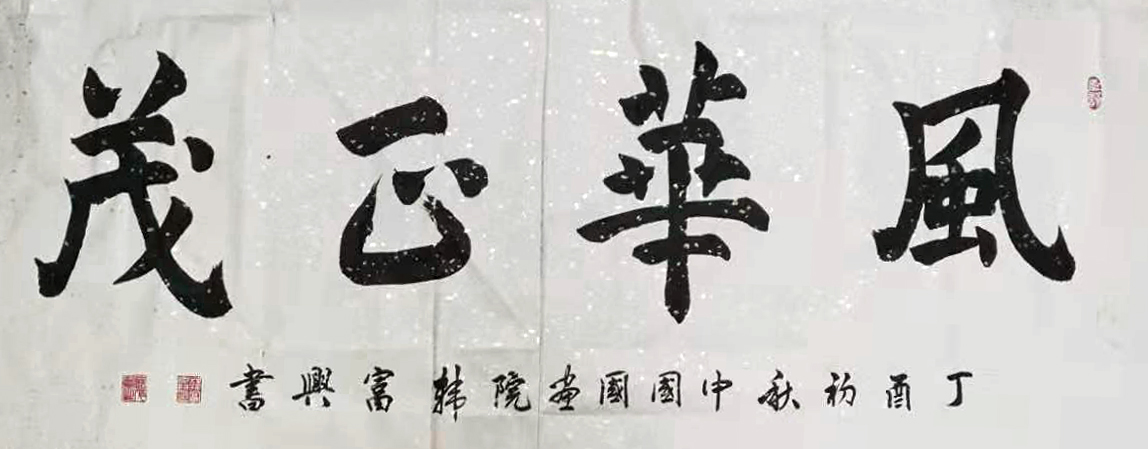 風華正茂
丁酉初秋中國國畫院韩富興書